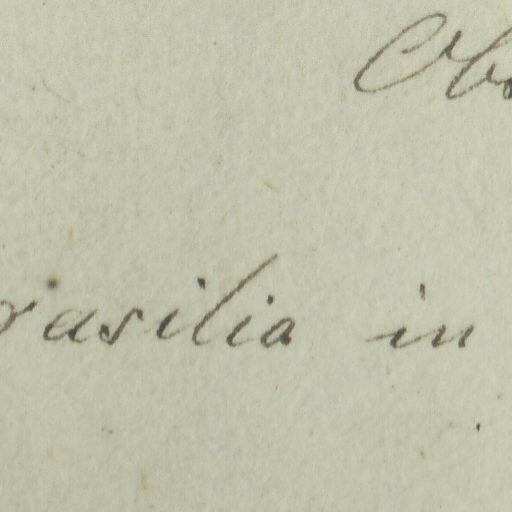 Obs
rasilia in